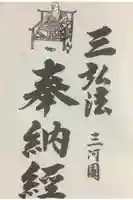 三弘法
三河國
奉納経